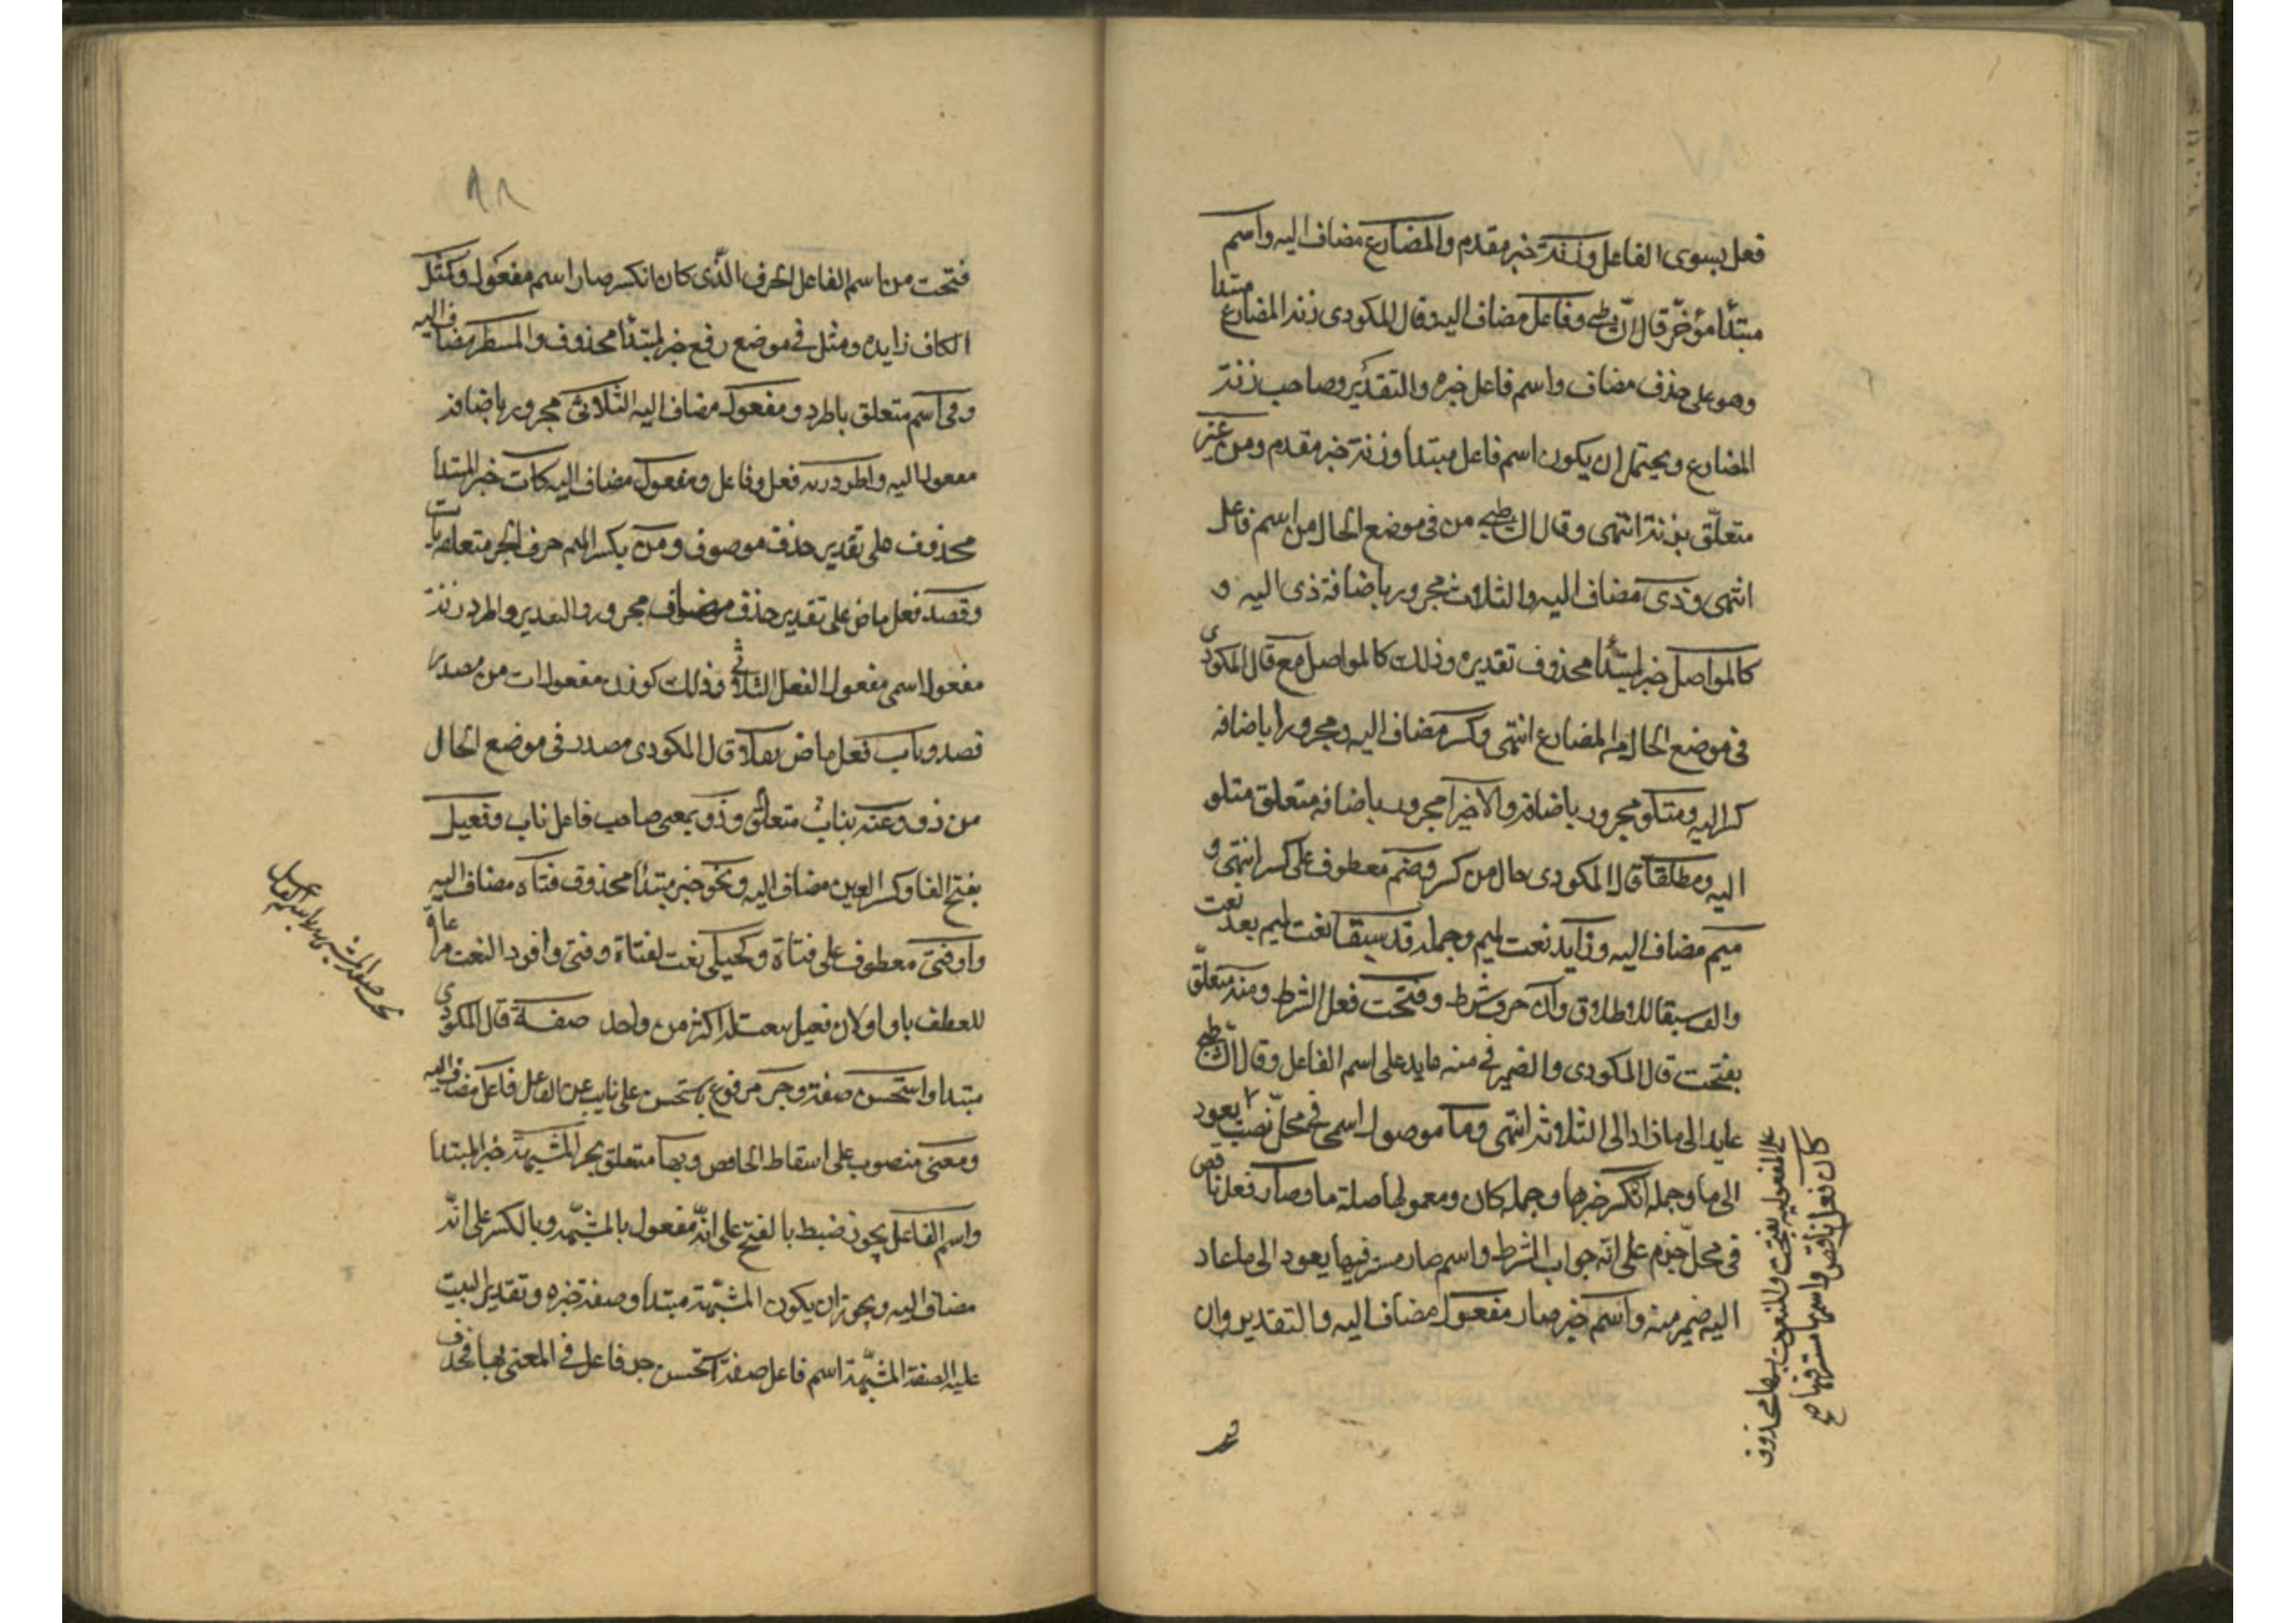 فعل بسوى الفاعل وزنة خبر مقدم والمضارع مضاف اليه واسم
مبتدأ مؤخر قال الشاطبي وفاعل مضاف اليه وقال المكودى زنة المضارع مبتدا
وهو على حذف مضاف واسم فاعل خبره والتقدير وصاحب زنة
المضارع ويحتمل ان يكون اسم فاعل مبتدأ وزنة خبر مقدم ومن غير
متعلّق بزنة انتهى وقال الشاطبي من فى موضع الحال من اسم فاعل
انتهى وذى مضاف اليه والثلاث مجرور باضافة ذى اليه و
كالمواصل خبر لمبتدأ محذوف تقديره وذلك كالمواصل مع قال المكودى
فى موضع الحال من المضارع انتهى وكسر مضاف اليه ومجرورا باضافه
كسر اليه ومتلو مجرور باضافة والاخير مجرور باضافه متعلق متلو
اليه ومطلقا قال المكودى حال من كسر وضم معطوف على كسر انتهى و
ميم مضاف اليه وزايد نعت لميم وجمله قد سبقا نعت لميم بعد نعت
والف سبقا للاطلاق وان حرف شرط وفتحت فعل الشرط ومنه متعلّق
بفتحت قال المكودى والضمير فى منه عايد على اسم الفاعل وقال الشاطبي
عايد الى ما زاد الى الثلاثة انتهى وما موصول اسمى فى محلّ نصب يعود
الى ما وجملة انكسر خبرها وجملة كان ومعمولها صلة ما وصار فعل ناقص
فى محلّ جزم على انه جواب الشرط واسم صار مستتر فيها يعود الى ما عاد
اليه ضمير منه واسم خبر صار مفعول مضاف اليه والتقدير وان
على المفعوليه بفتحت والمنعوت بها محذوف
كان فعل ناقص واسمها مستتر فيها صح
٩٨
فتحت من اسم الفاعل الحرف الّذى كان انكسر صار اسم مفعول وكمثل
الكاف زايده ومثل فى موضع رفع خبر لمبتدأ محذوف والمنتظر مضاف اليه
وفى اسم متعلق باطرد ومفعول مضاف اليه الثلاثى مجرور باضافة
مفعول اليه واطرد زنة فعل وفاعل ومفعول مضاف اليه كآت خبر المبتدأ
محذوف على تقدير حذف موصوف ومن بكسر الميم حرف الجر متعلق بآت
وقصد فعل ماض على تقدير حذف مضاف مجرور والتقدير واطرد زنة
مفعول اسمى مفعول الفعل الثلاثى وذلك كوزن مفعول ات من مصدر
قصد وناب فعل ماض نقلا قال المكودى مصدر فى موضع الحال
من ذو وعنه بناب متعلّق وذو بمعنى صاحب فاعل ناب وفعيل
بفتح الفا وكسر العين مضاف اليه ونحو خبر مبتدأ محذوف فتاه مضاف اليه
واو فتى معطوف على فتاة وكحيل نعت لفتاة وفتى وافرد النعت مراعاة
للعطف باو او لان فعيل ينعت به اكثر من واحد صفة قال المكودى
مبتدا واستحسن صفة وجر مرفوع باستحسن على نايب عن الفاعل فاعل مضاف اليه
ومعنى منصوب على اسقاط الخافض وبها متعلق بجر المشبهة خبر المبتدا
واسم الفاعل يجوز ضبط بالفتح على انّه مفعول بالمشبّهه وبالكسر على انّه
مضاف اليه ويجوز ان يكون المشبّهة مبتدأ وصفة خبره وتقدير البيت
عليه الصفة المشبّهة اسم فاعل صفة استحسن جر فاعل فى المعنى بها فحذف